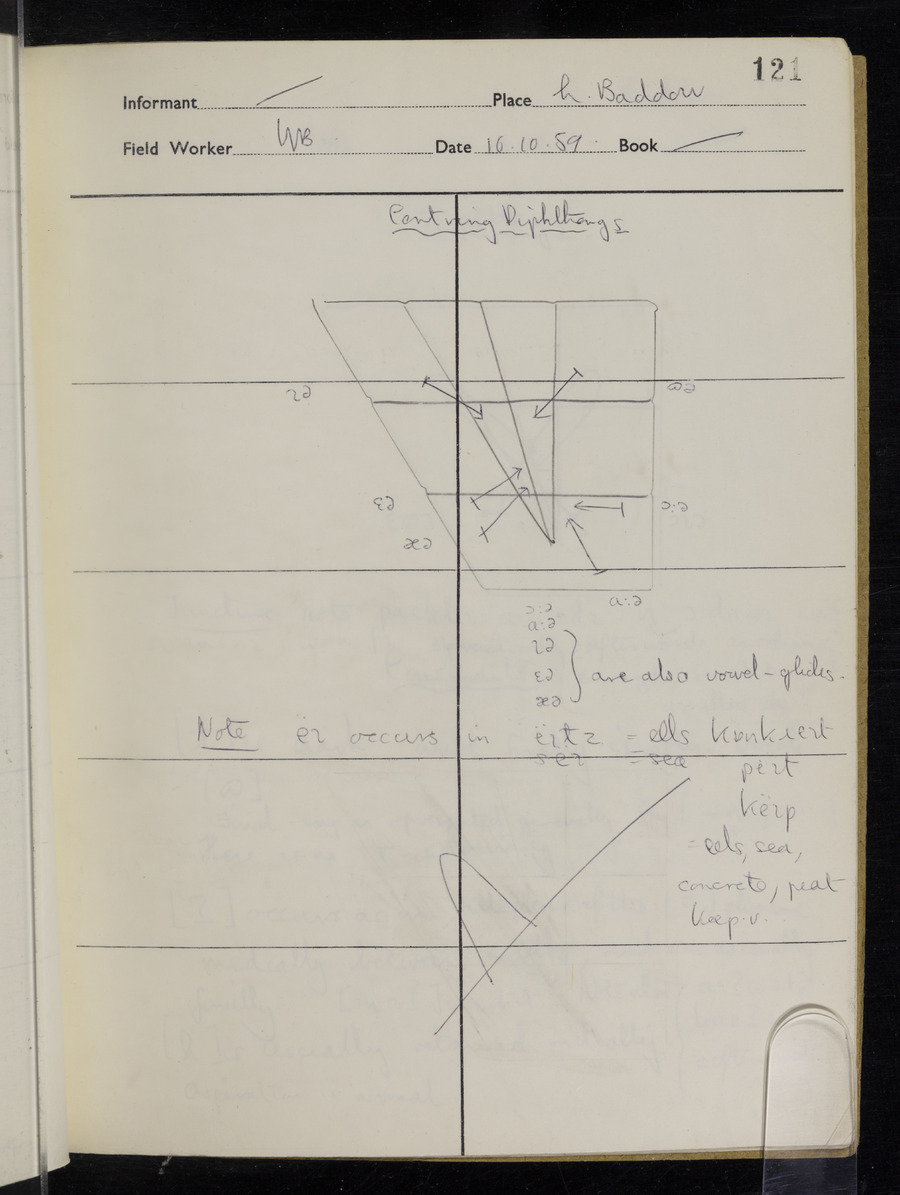 121
Informant Place h. Baddow
Field Worker Date 16.10.59. Book
Centring Diphthongs
ɩə ʊə
ɛə ɔ:ə
æə
ɔ:ə ɑ:ə
ɑ:ə
ɩə
ɛə } are also vowel-glides.
æə
Note ëɩ occurs in ëɩɫz = eels
sëɩ = sea
pëɩt
këɩp
= eels, sea,
concrete, peat
keep.v.